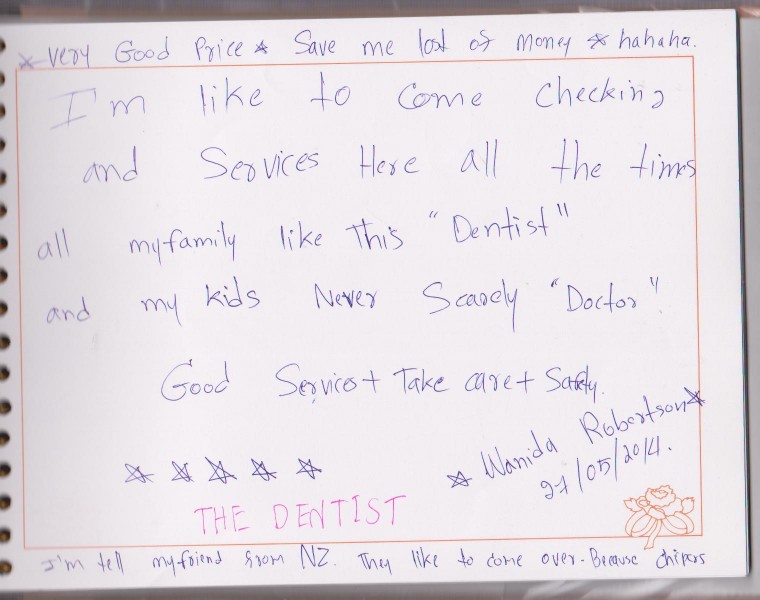 * very Good Price * Save me lost of money * hahaha.
I'm like to come checking
and Services Here all the times
all my family like This "Dentist"
and my kids Never Scarely "Doctor".
Good Services+ Take care+ Safety.
* Wanida Robertson *
21/05/2014.
THE DENTIST
I'm tell my friend from NZ. They like to come over. Because chipers